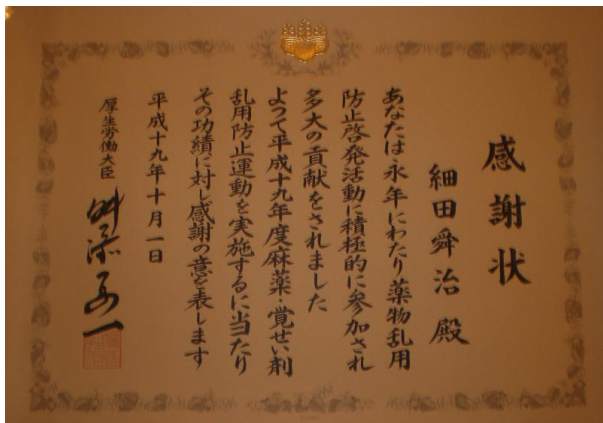 感謝状
細田舜治殿
あなたは永年にわたり薬物乱用
防止啓発活動に積極的に参加され
多大の貢献をされました
よって平成十九年度麻薬・覚せい剤
乱用防止運動を実施するに当たり
その功績に対し感謝の意を表します
平成十九年十月一日
厚生労働大臣 舛添要一